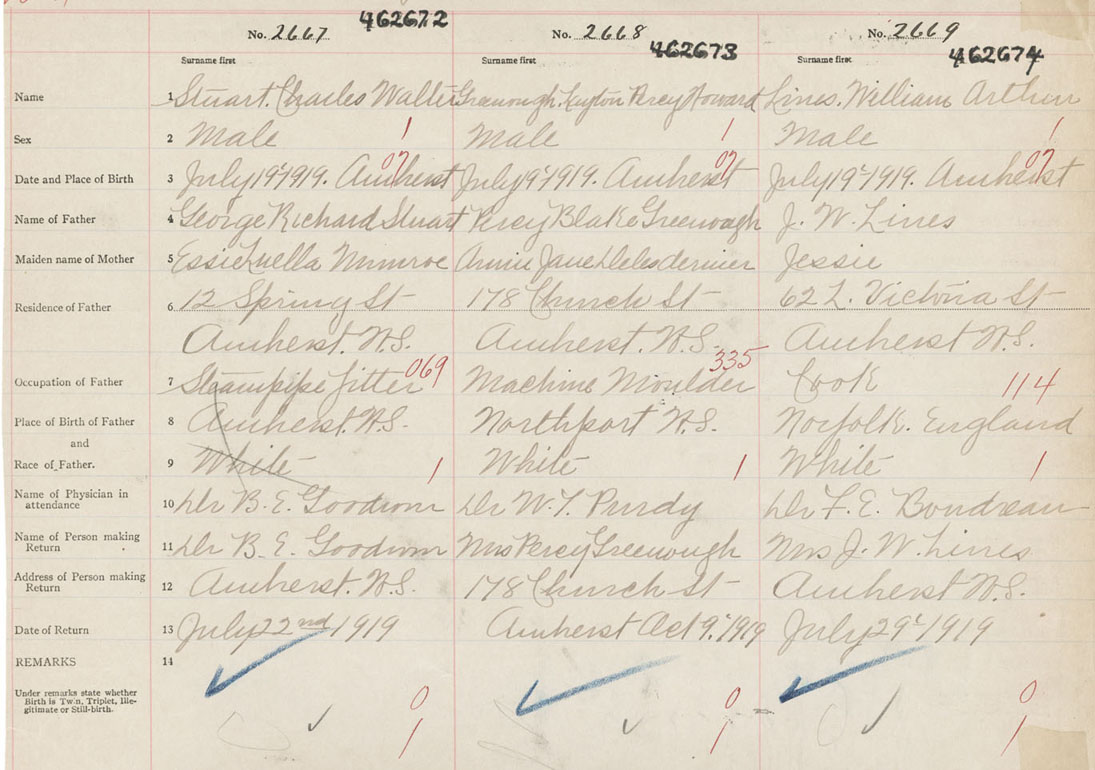 462672 462673 462674
No. 2667 No. 2668 No. 2669
Surname first Surname first Surname first
Name 1 Stuart. Charles Walter Greenough. Layton Percy Howard Lines. William Arthur
Sex 2 Male 1 Male 1 Male 1
07 07 07
Date and Place of Birth 3 July 19th 1919. Amherst July 19th 1919. Amherst July 19th 1919. Amherst
Name of Father 4 George Richard Stuart Percy Blake Greenough J. W. Lines
Maiden name of Mother 5 Essie Luella Munroe Annie Jane Delesdernier Jessie
Residence of Father 6 12 Spring St 178 Church St 62 E. Victoria St
Amherst. N.S. Amherst. N.S. Amherst. N.S.
Occupation of Father 7 Steampipe fitter 069 Machine Moulder 335 Cook 114
Place of Birth of Father 8 Amherst. N.S. Northport N.S. Norfolk. England
and
Race of Father. 9 White 1 White 1 White 1
Name of Physician in
attendance 10 Dr B. E. Goodwin Dr W. T. Purdy Dr F. E. Boudreau
Name of Person making
Return 11 Dr B. E. Goodwin Mrs Percy Greenough Mrs J. W. Lines
Address of Person making
Return 12 Amherst. N.S. 178 Church St Amherst N.S.
Date of Return 13 July 22nd 1919 Amherst Oct 9th 1919 July 29th 1919
REMARKS 14
Under remarks state whether
Birth is Twin, Triplet, Ille-
gitimate or Still-birth.
0 0 0
1 1 1